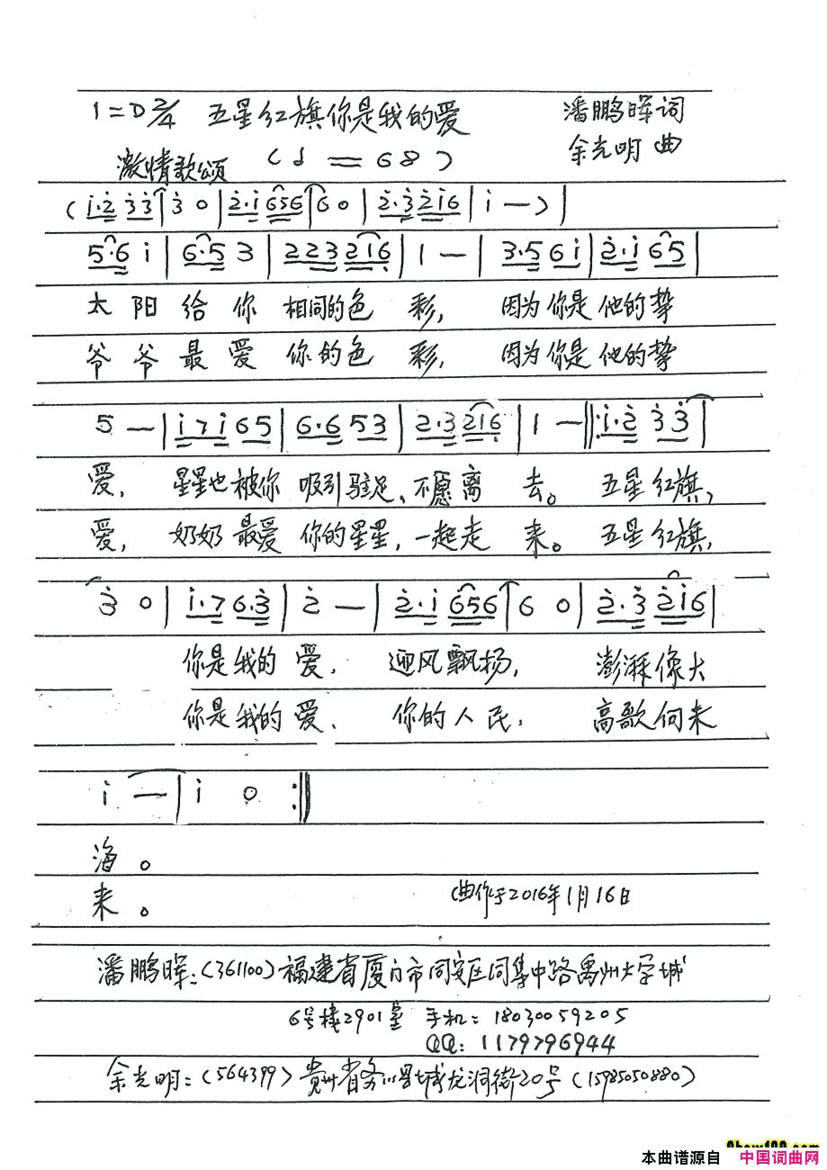 1=D 2/4 五星红旗你是我的爱 潘鹏晖词
激情歌颂 (♩=68) 余光明 曲
(i·2̇ 3̇3̇|3̇ 0|2̇·i 656|6 0|2̇·3̇ 2̇i6|i —)|
5·6 i|6·5 3|223 216|1 —|3·5 6i|2̇·i 65|
太 阳 给 你 相同的色 彩, 因为你是 他的挚
爷 爷 最 爱 你的色 彩, 因为你是 他的挚
5 —|i7i 65|6·6 53|2·3 216|1 —‖:i·2̇ 3̇3̇|
爱, 星星也被你 吸引驻足、不愿离 去。 五星红旗,
爱, 奶奶最爱 你的星星, 一起走 来。 五星红旗,
3̇ 0|i·7 6·3̇|2̇ —|2̇·i 656|6 0|2̇·3̇ 2̇i6|
你是我的 爱. 迎风飘扬, 澎湃像大
你是我的 爱. 你的人民, 高歌向未
i —|i 0:‖
海。
来。 曲作于2016年1月16日
潘鹏晖:(361100)福建省厦门市同安区同集中路禹州大学城
6号楼2901室 手机:18030059205
QQ:1179796944
余光明:(564399)贵州省务川县城龙洞街20号(15985050880)
本曲谱源自 中国词曲网